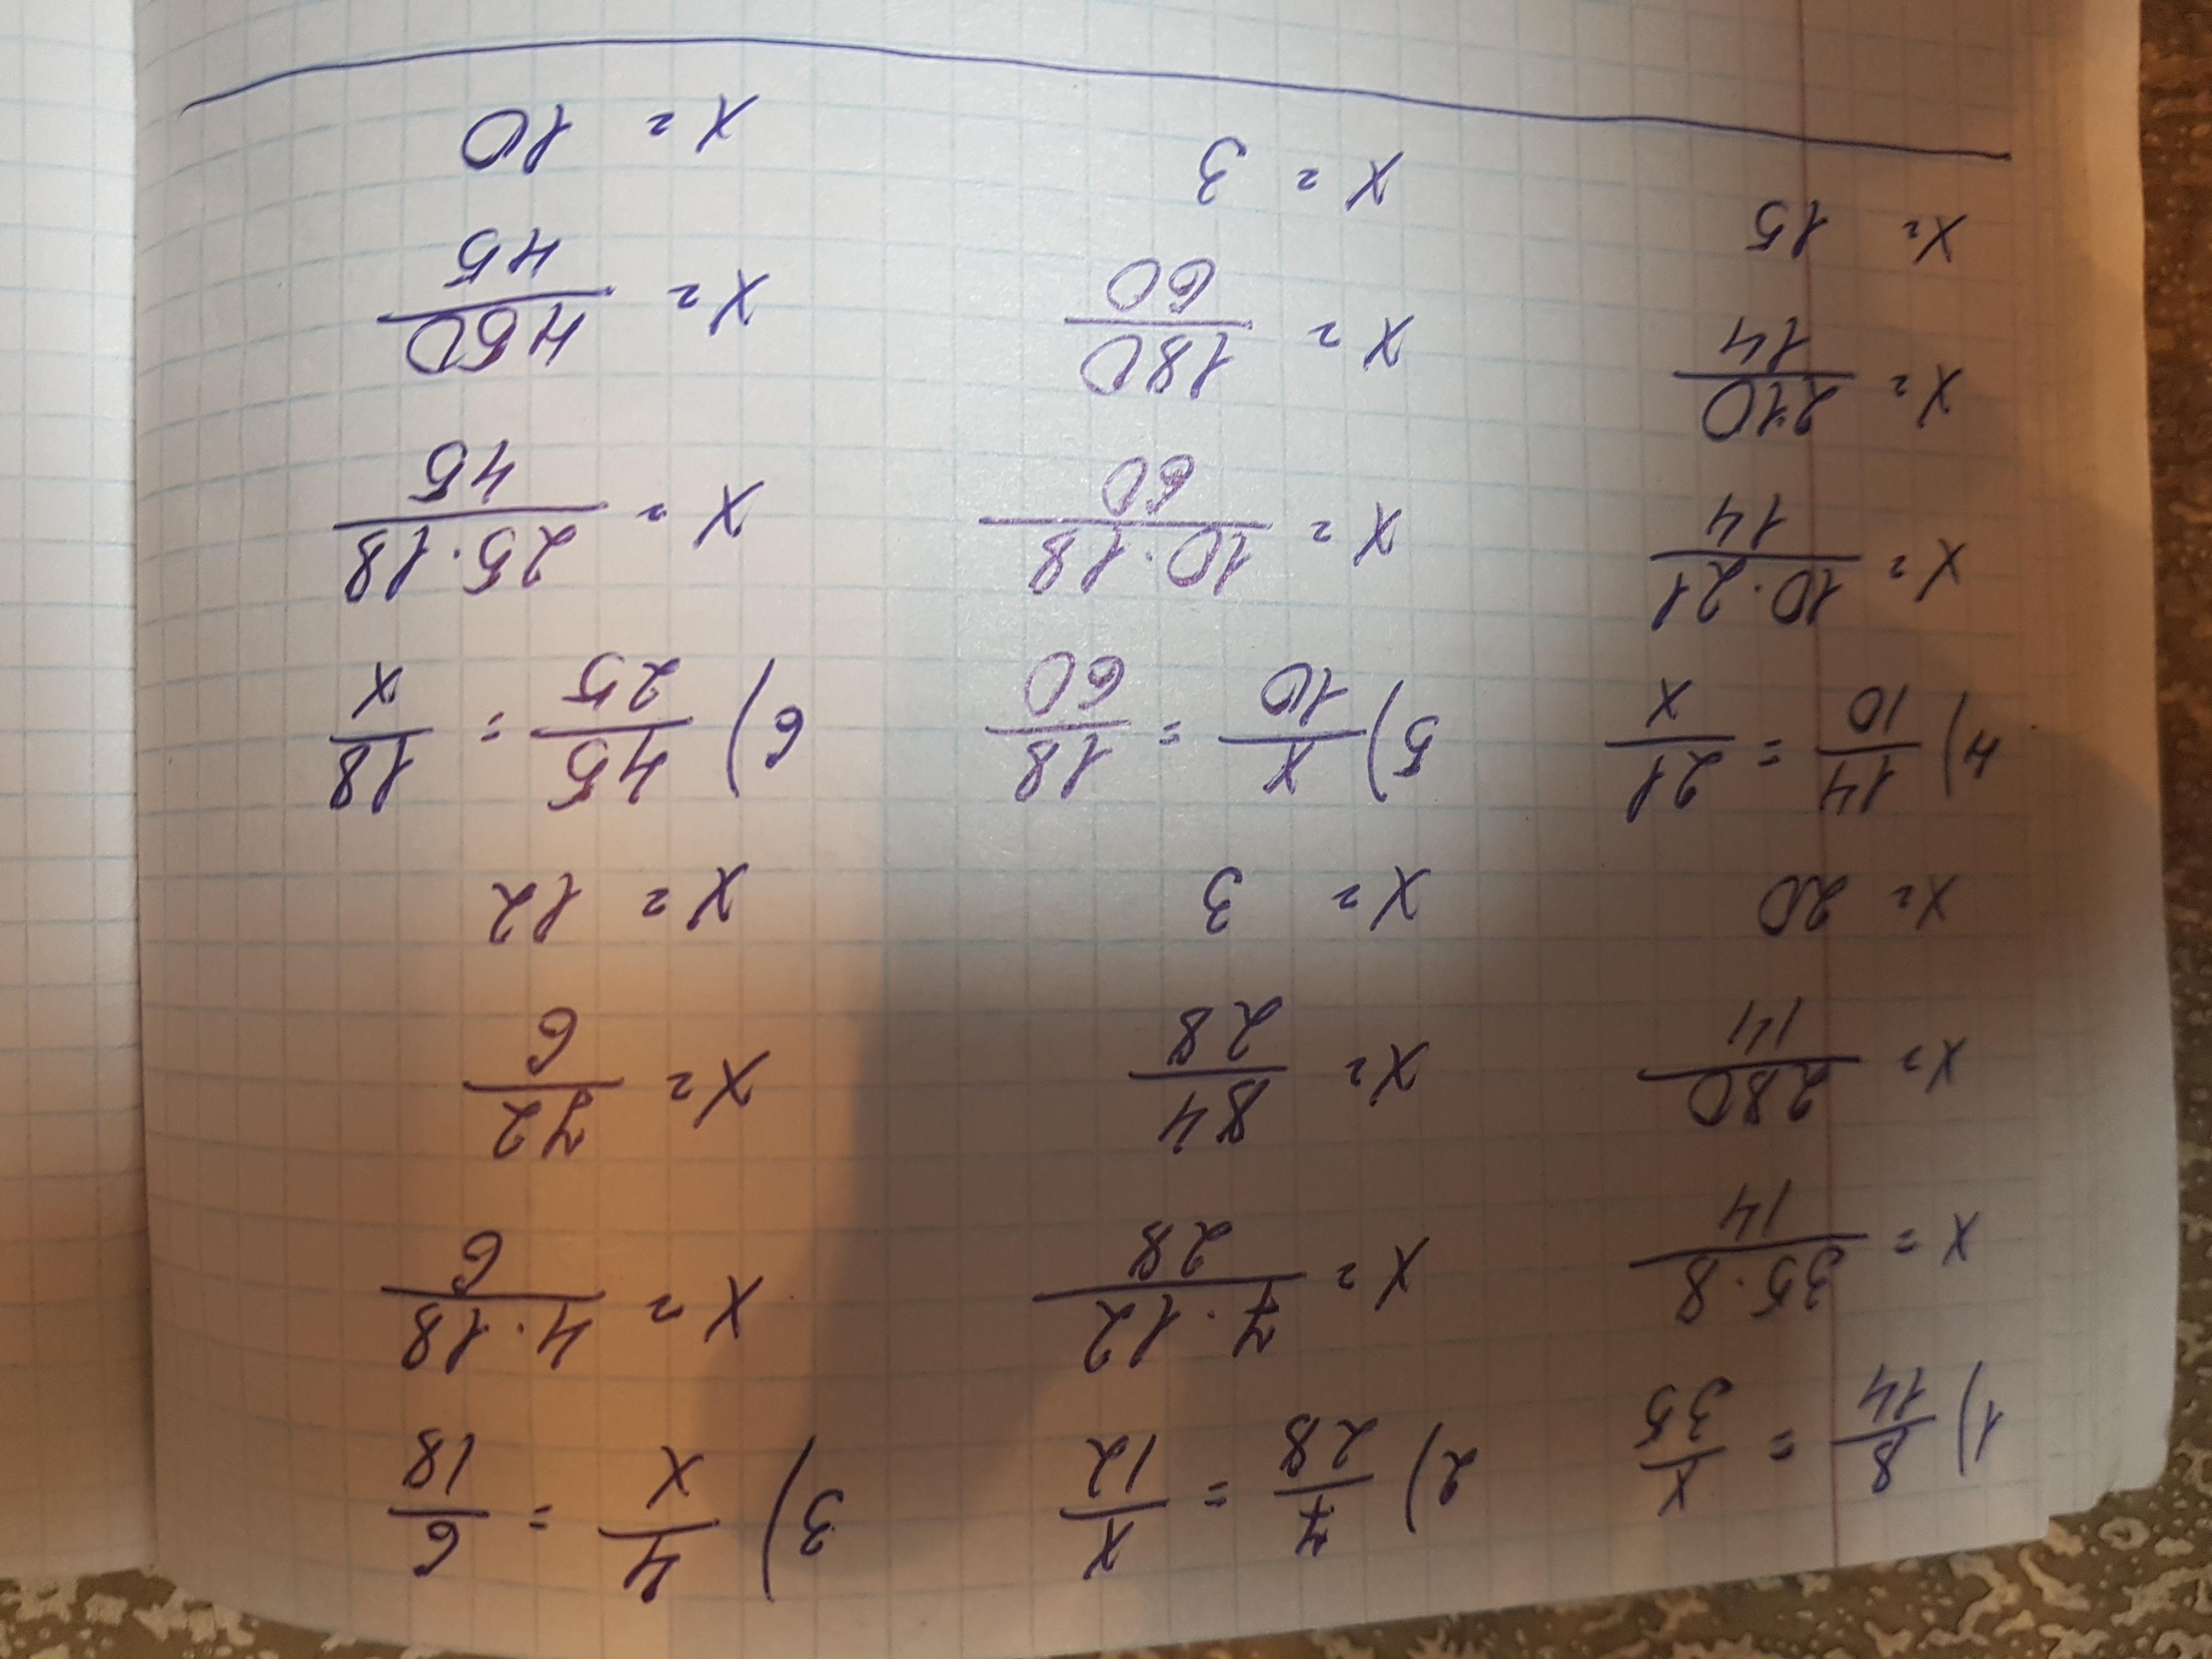 1) 8/14 = x/35
x = 35·8/14
x = 280/14
x = 20
2) 7/28 = x/12
x = 7·12/28
x = 84/28
x = 3
3) 4/x = 6/18
x = 4·18/6
x = 72/6
x = 12
4) 14/10 = 21/x
x = 10·21/14
x = 210/14
x = 15
5) x/10 = 18/60
x = 10·18/60
x = 180/60
x = 3
6) 45/25 = 18/x
x = 25·18/45
x = 450/45
x = 10